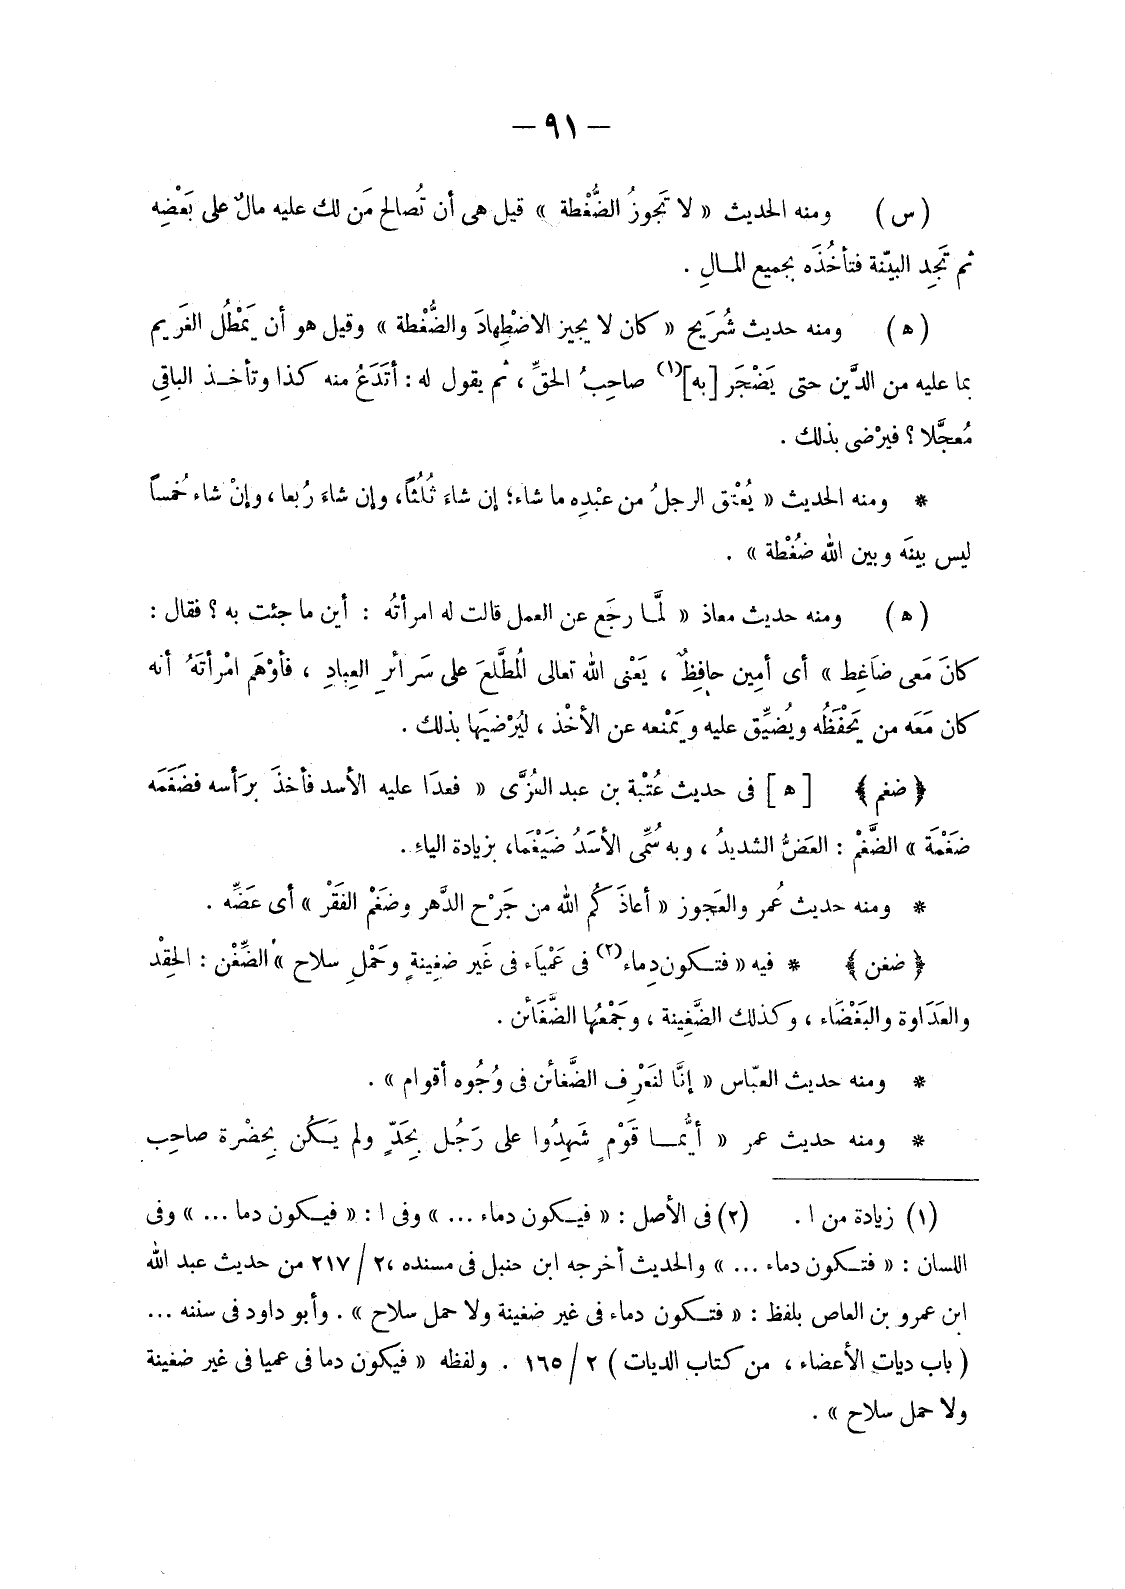 — ٩١ —
(س) ومنه الحديث « لا تَجوزُ الضُّغْطة » قيل هى أن تُصالح مَن لك عليه مالٌ على بَعْضِه
ثم تَجِد البيّنة فتأخُذَه بجميع المـالِ .
(ه) ومنه حديث شُرَيح « كان لا يجيز الاضْطِهادَ والضُّغْطة » وقيل هو أن يَمْطُل الغَريم
بما عليه من الدَّين حتى يَضْجَر [به](١) صاحبُ الحقِّ ، ثم يقول له : أتَدَعُ منه كذا وتأخـذ الباقِى
مُعجَّلا ؟ فيرْضى بذلك .
* ومنه الحديث « يُعْتِق الرجلُ من عبْدِه ما شاء؛ إن شاءَ ثُلُثاً، وإن شاءَ رُبعا ، وإنْ شاء خُمساً
ليس بينَه وبين الله ضُغْطة » .
(ه) ومنه حديث معاذ « لمَّـا رجَع عن العمل قالت له امرأتُه : أين ما جئت به ؟ فقال :
كانَ مَعى ضاَغِط » أى أمِين حافِظٌ ، يَعْنى الله تعالى المُطَّلعَ على سَرائرِ العِبادِ ، فأوْهَم امْرأتَهُ أنه
كان مَعَه من يَحْفَظُه ويُضيِّق عليه ويَمْنعه عن الأخْذ ، ليُرْضيَها بذلك .
﴿ ضغم ﴾ [ ه ] فى حديث عُتْبة بن عبد العُزَّى « فعدَا عليه الأسد فأخذَ برَأسه فضَغَمَه
ضَغْمَة » الضَّغْم : العَضُّ الشديدُ ، وبه سُمِّى الأسَدُ ضَيْغَما، بزيادة الياءِ .
* ومنه حديث عُمر والعَجوز « أعاذَكُم الله من جَرْح الدَّهر وضَغْم الفَقْر » أى عَضِّه .
﴿ ضغن ﴾ * فيه « فتـكون دِماء(٢) فى عَمْيَاَء فى غَير ضغِينةٍ وحَمْلِ سلاح » الضِّغْن : الحِقْد
والعَدَاوة والبَغْضَاء ، وكذلك الضَّغِينة ، وجَمْعُها الضَّغَائن .
* ومنه حديث العبّاس « إنَّا لنَعْرِف الضَّغائن فى وُجُوه أقوام » .
* ومنه حديث عمر « أيُّمـا قَوْمٍ شَهِدُوا على رَجُل بِحَدّ ٍ ولم يَـكُن بِحضْرة صاحِب
(١) زيادة من ا . (٢) فى الأصل : « فيـكون دماء ... » وفى ا : « فيـكون دما ... » وفى
اللسان : « فتـكون دماء ... » والحديث أخرجه ابن حنبل فى مسنده ٢/ ٢١٧ من حديث عبد الله
ابن عمرو بن العاص بلفظ : « فتـكون دماء فى غير ضغينة ولا حمل سلاح » . وأبو داود فى سننه ...
( باب ديات الأعضاء ، من كتاب الديات ) ٢ / ١٦٥ . ولفظه « فيكون دما فى عميا فى غير ضغينة
ولا حمل سلاح » .